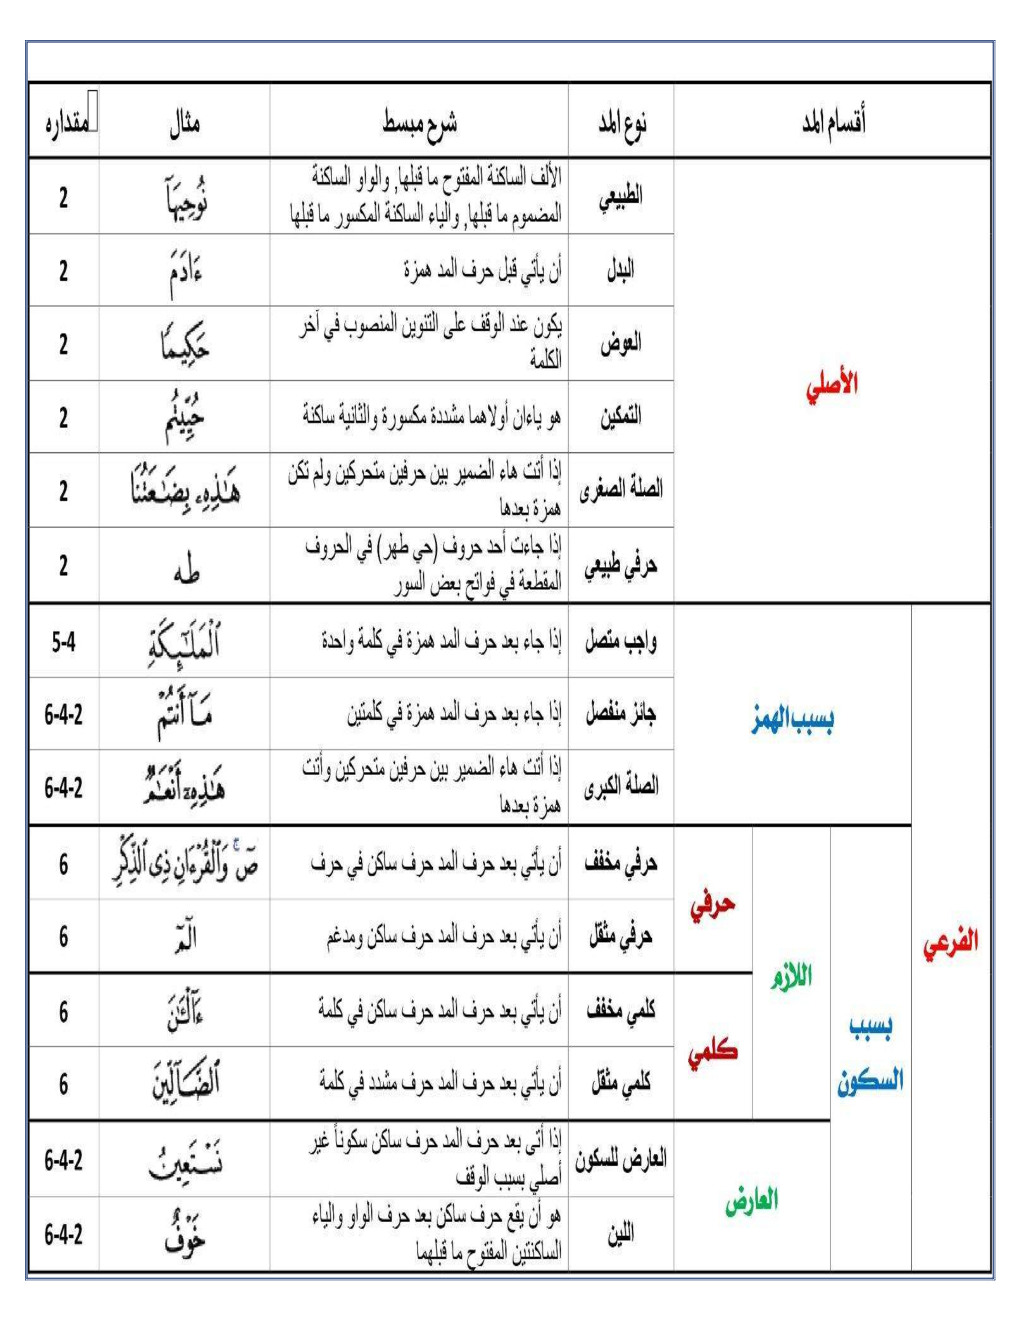 أقسام المد نوع المد شرح مبسط مثال مقداره
الأصلي
الطبيعي الألف الساكنة المفتوح ما قبلها, والواو الساكنة
المضموم ما قبلها, والياء الساكنة المكسور ما قبلها نُوحِيهَآ 2
البدل أن يأتي قبل حرف المد همزة ءَادَمَ 2
العوض يكون عند الوقف على التنوين المنصوب في آخر
الكلمة حَكِيمًا 2
التمكين هو ياءان أولاهما مشددة مكسورة والثانية ساكنة حُيِّيتُم 2
الصلة الصغرى إذا أتت هاء الضمير بين حرفين متحركين ولم تكن
همزة بعدها هَٰذِهِۦ بِضَٰعَتُنَا 2
حرفي طبيعي إذا جاءت أحد حروف (حي طهر) في الحروف
المقطعة في فواتح بعض السور طه 2
الفرعي
بسبب الهمز
واجب متصل إذا جاء بعد حرف المد همزة في كلمة واحدة ٱلْمَلَٰٓئِكَةِ 5-4
جائز منفصل إذا جاء بعد حرف المد همزة في كلمتين مَآ أَنتُمْ 6-4-2
الصلة الكبرى إذا أتت هاء الضمير بين حرفين متحركين وأتت
همزة بعدها هَٰذِهِۦٓ أَنْعَٰمٌ 6-4-2
بسبب
السكون
اللازم
حرفي
حرفي مخفف أن يأتي بعد حرف المد حرف ساكن في حرف صٓ ۚ وَٱلْقُرْءَانِ ذِى ٱلذِّكْرِ 6
حرفي مثقل أن يأتي بعد حرف المد حرف ساكن ومدغم الٓمٓ 6
كلمي
كلمي مخفف أن يأتي بعد حرف المد حرف ساكن في كلمة ءَآلْـَٰٔنَ 6
كلمي مثقل أن يأتي بعد حرف المد حرف مشدد في كلمة ٱلضَّآلِّينَ 6
العارض
العارض للسكون إذا أتى بعد حرف المد حرف ساكن سكوناً غير
أصلي بسبب الوقف نَسْتَعِينُ 6-4-2
اللين هو أن يقع حرف ساكن بعد حرف الواو والياء
الساكنتين المفتوح ما قبلهما خَوْفٌ 6-4-2